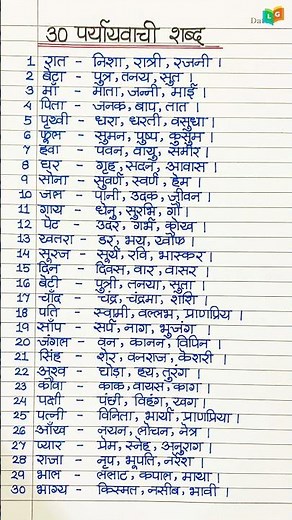 Da LG
30 पर्यायवाची शब्द
1 रात - निशा, रात्री, रजनी।
2 बेटा - पुत्र, तनय, सुत।
3 माँ - माता, जन्नी, माई।
4 पिता - जनक, बाप, तात।
5 पृथ्वी - धरा, धरती, वसुधा।
6 फूल - सुमन, पुष्प, कुसुम।
7 हवा - पवन, वायु, समीर।
8 घर - गृह, सदन, आवास।
9 सोना - सुवर्ण, स्वर्ण, हेम।
10 जल - पानी, उदक, जीवन।
11 गाय - धेनु, सुरभि, गौ।
12 पेट - उदर, गर्भ, कोख।
13 खतरा - डर, भय, खौफ।
14 सूरज - सूर्य, रवि, भास्कर।
15 दिन - दिवस, वार, वासर।
16 बेटी - पुत्री, तनया, सुता।
17 चाँद - चंद्र, चंद्रमा, शशि।
18 पति - स्वामी, वल्लभ, प्राणप्रिय।
19 साँप - सर्प, नाग, भुजंग।
20 जंगल - वन, कानन, विपिन।
21 सिंह - शेर, वनराज, केशरी।
22 अश्व - घोड़ा, हय, तुरंग।
23 कौवा - काक, वायस, काग।
24 पक्षी - पंछी, विहंग, खग।
25 पत्नी - विनिता, भार्या, प्राणप्रिया।
26 आँख - नयन, लोचन, नेत्र।
27 प्यार - प्रेम, स्नेह, अनुराग।
28 राजा - नृप, भूपति, नरेश।
29 भाल - ललाट, कपाल, माथा।
30 भाग्य - किस्मत, नसीब, भावी।